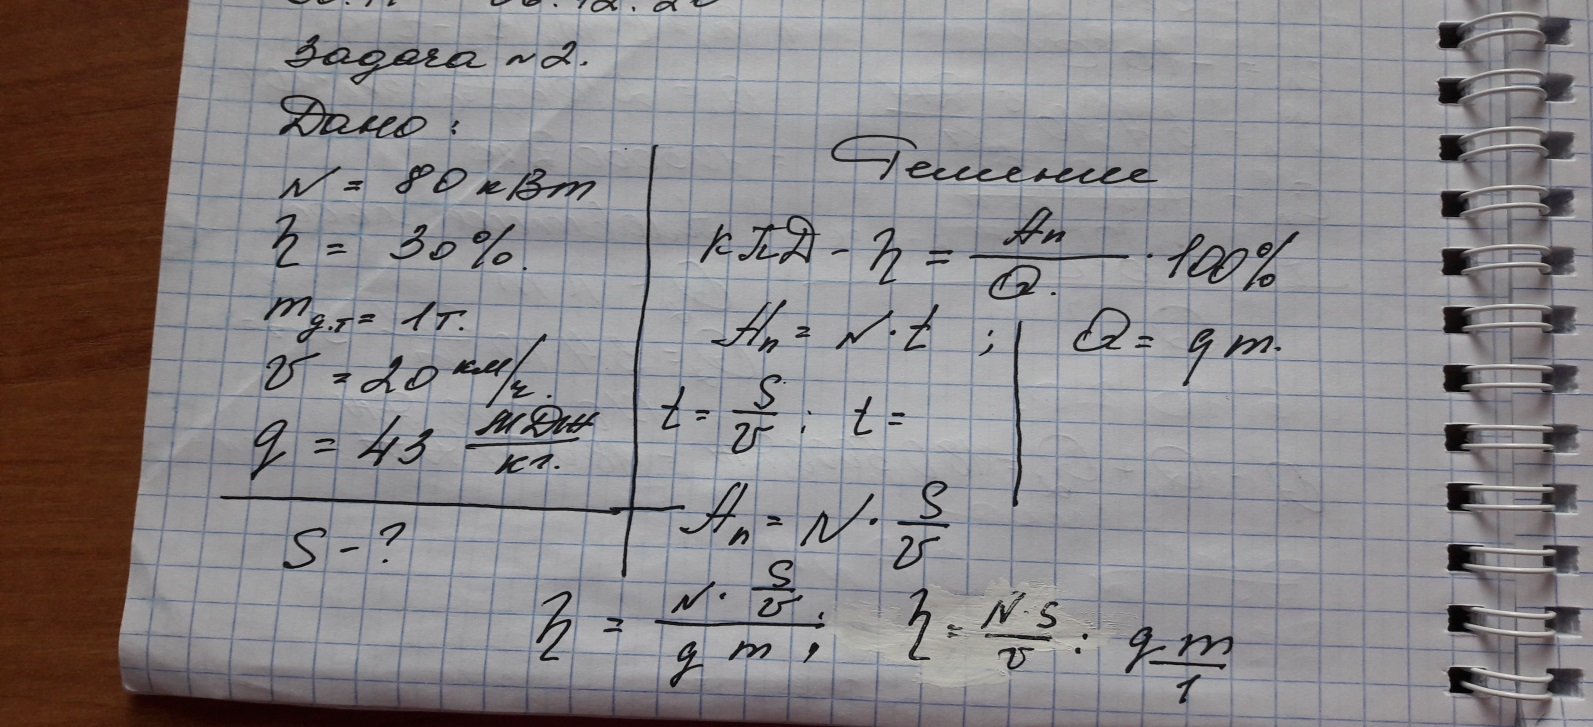 Задача №2.
Дано:
N = 80 кВт
η = 30%.
m д.т = 1т.
v = 20 км/ч.
q = 43 МДж/кг.
S - ?
Решение
КПД - η = Aп/Q. · 100%
Aп = N · t ; Q = q m.
t = S/v ; t =
Aп = N · S/v
η = N · S/v / q m ; η = N · S/v : q m/1